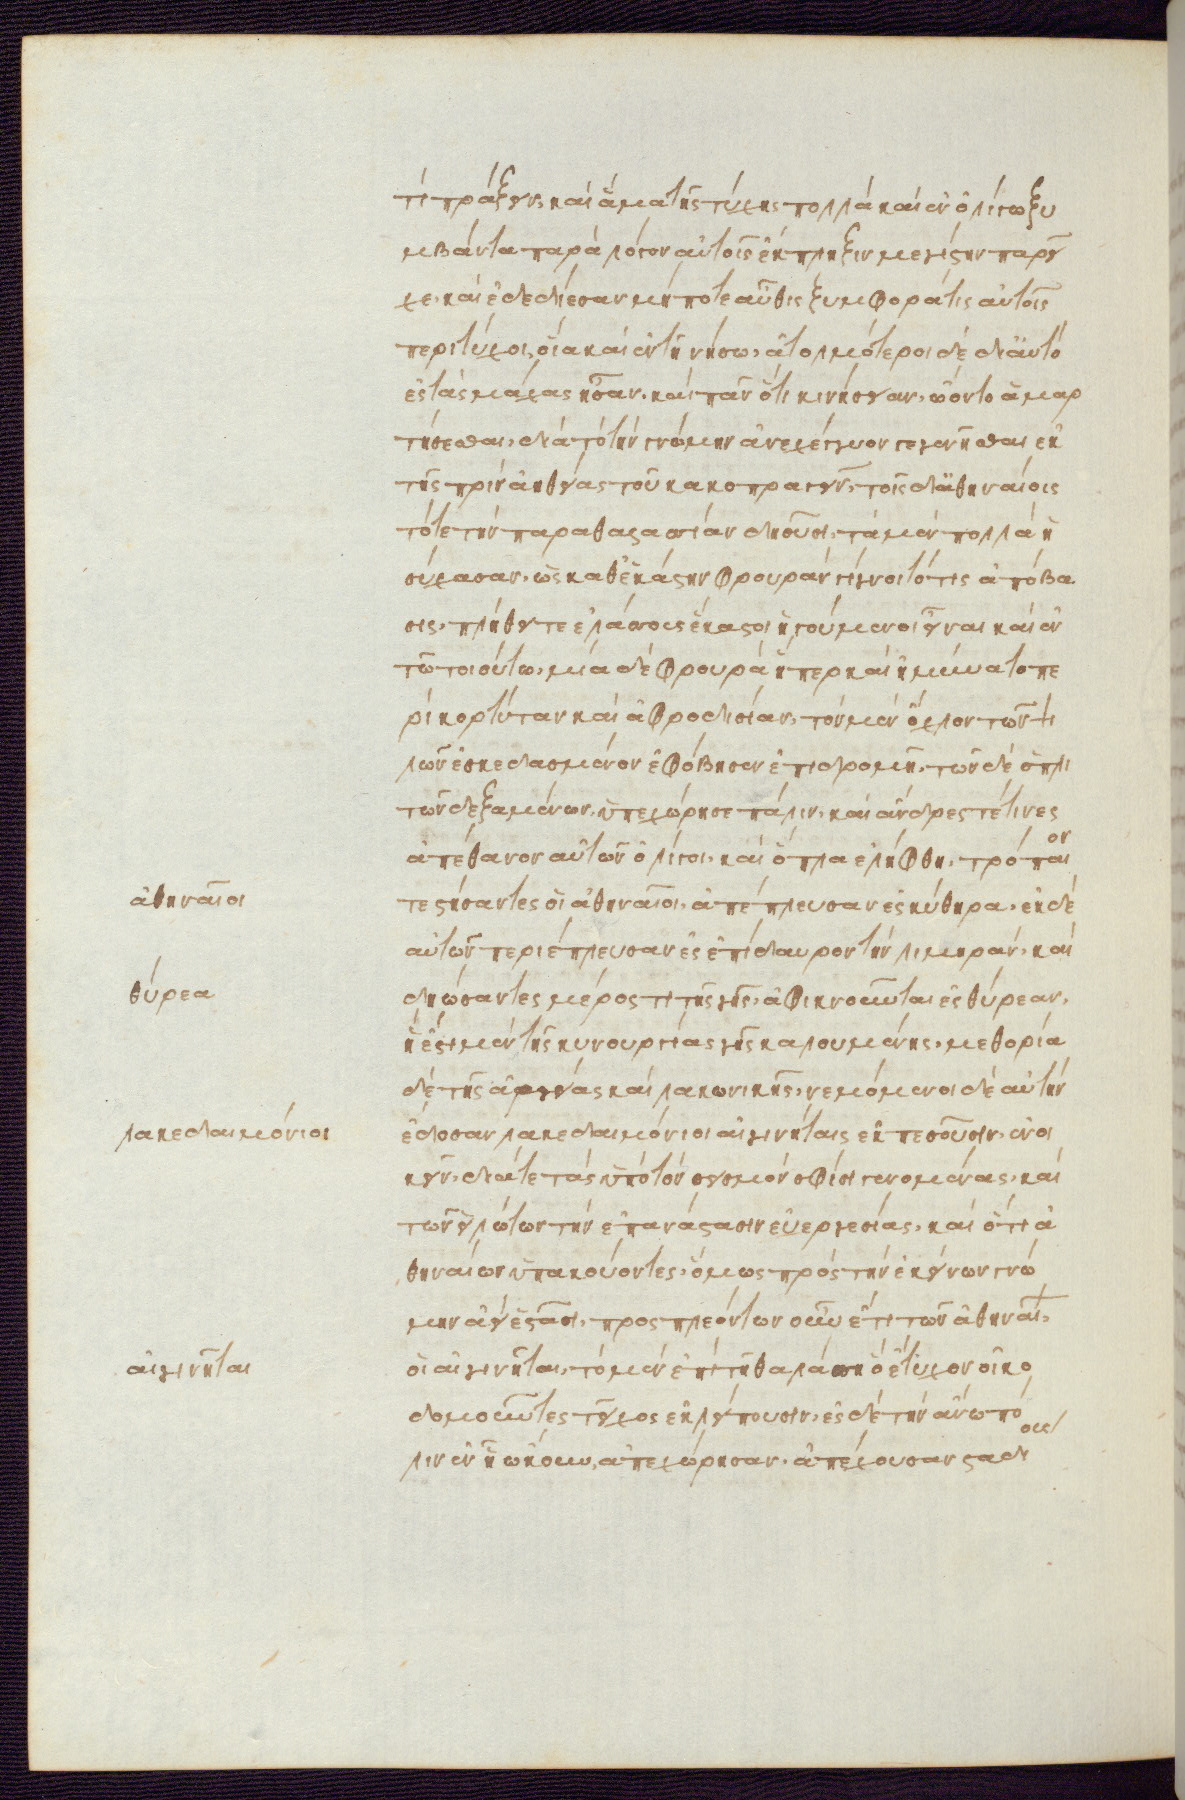 τὶ πράξειν, καὶ ἅμα τῆς τύχης πολλὰ καὶ ἐν ὀλίγω ξυ
μβάντα παρὰ λόγον αὐτοῖς ἔκπληξιν μεγίστην παρεῖ
χε, καὶ ἐδεδίεσαν μή ποτε αὖθις ξυμφορά τις αὐτοῖς
περιτύχοι, οἷα καὶ ἐν τῆ νήσω, ἀτολμότεροι δὲ δι᾽ αὐτὸ
ἐς τὰς μάχας ἦσαν, καὶ πᾶν ὅτι κινήσειαν, ὤοντο ἁμαρ
τήσεσθαι, διὰ τὸ τὴν γνώμην ἀνεχέγγυον γεγενῆσθαι ἐκ
τῆς πρὶν ἀηθείας τοῦ κακοπραγεῖν, τοῖς δ᾽ ἀθηναίοις
τότε τὴν παραθαλασσίαν δηοῦσι, τὰ μὲν πολλὰ ἡ
σύχασαν, ὡς καθ᾽ ἑκάστην φρουρὰν γίγνοιτό τις ἀπόβα
σις, πλήθει τε ἐλάσσους ἕκαστοι ἡγούμενοι εἶναι καὶ ἐν
τῶ τοιούτω, μία δὲ φρουρὰ ἥπερ καὶ ἠμύνατο πε
ρὶ κορτύταν καὶ ἀφροδισίαν, τὸν μὲν ὄχλον τῶν ψι
λῶν ἐσκεδασμένον ἐφόβησεν ἐπιδρομῆ, τῶν δὲ ὁπλι
τῶν δεξαμένων, ὑπεχώρησε πάλιν, καὶ ἄνδρες τέ τινες
ἀπέθανον αὐτῶν ὀλίγοι, καὶ ὅπλα ἐλήφθη, τρόπαιον
ἀθηναῖοι
τε στήσαντες οἱ ἀθηναῖοι, ἀπέπλευσαν ἐς κύθηρα, ἐκ δὲ
αὐτῶν περιέπλευσαν ἐς ἐπίδαυρον τὴν λιμηρὰν, καὶ
θύρεα
δηώσαντες μέρος τι τῆς γῆς, ἀφικνοῦνται ἐς θύρεαν,
ἥ ἐστι μὲν τῆς κυνουργίας γῆς καλουμένης, μεθορία
δὲ τῆς ἀργείας καὶ λακωνικῆς, νεμόμενοι δὲ αὐτὴν
λακεδαιμόνιοι
ἔδοσαν λακεδαιμόνιοι αἰγινήταις ἐκπεσοῦσιν, ἐνοι
κεῖν, διά τε τὰς ὑπὸ τὸν σεισμὸν σφίσι γενομένας, καὶ
τῶν εἱλώτων τὴν ἐπανάστασιν εὐεργεσίας, καὶ ὅτι ἀ
θηναίων ὑπακούοντες, ὅμως πρὸς τὴν ἐκείνων γνώ
μην ἀεὶ ἕστασι, προσπλεόντων οὖν ἔτι τῶν ἀθηναί,
αἰγινῆται
οἱ αἰγινῆται, τὸ μὲν ἐπὶ τῆ θαλάσση ὃ ἔτυχον οἰκο
δομοῦντες τεῖχος ἐκλείπουσιν, ἐς δὲ τὴν ἄνω πό
λιν ἐν ἧ ὤκουν, ἀπεχώρησαν, ἀπέχουσαν σταδίους